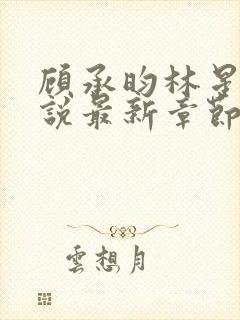 顾承昀林星
說最新章節
雲想月